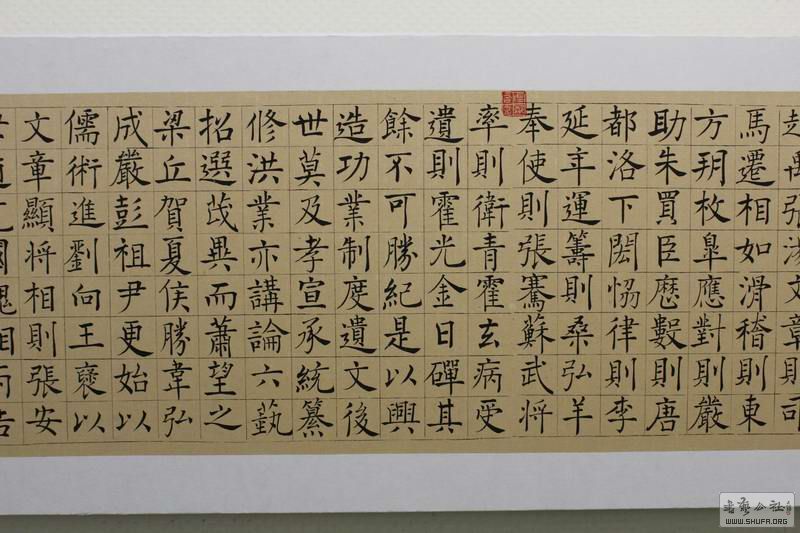 趙禹張湯文章則司
馬遷相如滑稽則東
方朔枚皐應對則嚴
助朱買臣歷數則唐
都洛下閎恊律則李
延年運籌則桑弘羊
奉使則張騫蘇武將
率則衛青霍去病受
遺則霍光金日磾其
餘不可勝紀是以興
造功業制度遺文後
世莫及孝宣承統纂
修洪業亦講論六藝
招選茂異而蕭望之
梁丘賀夏侯勝韋弘
成嚴彭祖尹更始以
儒術進劉向王褒以
文章顯將相則張安
國魏相丙吉
书藝公社
WWW.SHUFA.ORG